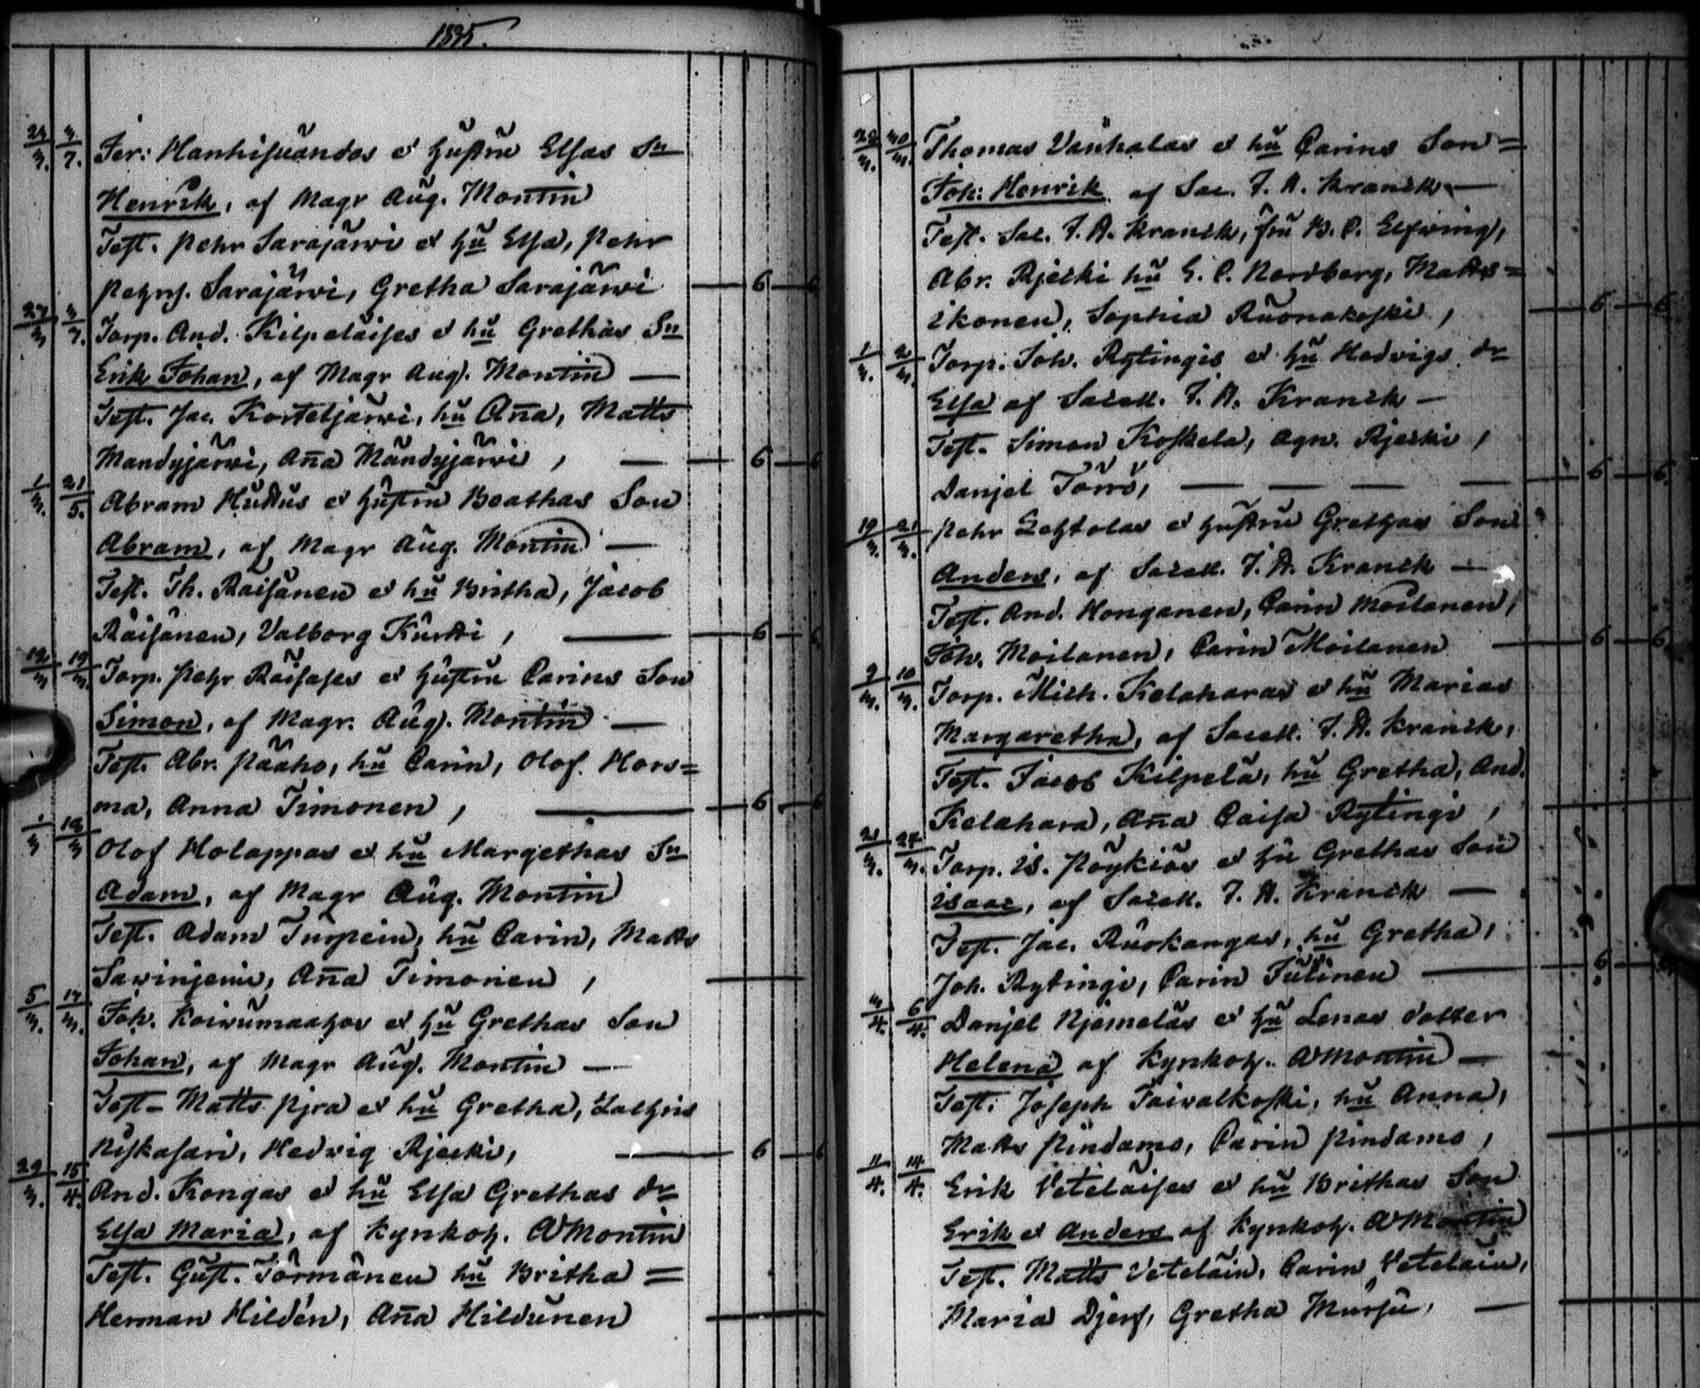 1835.
24/3. 3/7. Jer: Hanhisuandos et hustru Elsas Sn
Henrik, af Magr Aug. Montin
Test. Pehr Sarajärwi et hu Elsa, Pehr
Pehrss. Sarajärwi, Gretha Sarajärwi — 6 —
27/3 3/7. Torp. And. Kilpeläises et hu Grethas Sn
Erik Johan, af Magr Aug. Montin —
Test. Jac. Korteljärwi, hu Aña, Matts
Mändyjärwi, Aña Mändyjärwi, — 6 —
1/3. 21/5. Abram Huttus et hustru Beathas Son
Abram, af Magr Aug. Montin —
Test. Th. Räisänen et hu Britha, Jacob
Räisänen, Valborg Kurtti, — 6 —
12/3 19/3. Torp. Pehr Räisäses et hustru Carins Son
Simon, af Magr. Aug. Montin —
Test. Abr. Pääho, hu Carin, Olof Hors=
ma, Anna Timonen, — 6 —
1/3 12/3 Olof Holappas et hu Margethas Sn
Adam, af Magr Aug. Montin
Test. Adam Turpein, hu Carin, Matts
Sawinjemi, Aña Timonen, —
5/3. 17/3. Joh. Koiwumaahos et hu Grethas Son
Johan, af Magr Aug. Montin —
Test - Matts Pjra et hu Gretha, Zachris
Niskasari, Hedvig Rjecki, — 6 —
29/3. 15/4. And. Kongas et hu Elsa Grethas dr
Elsa Maria, af Kyrkoh. A Montin
Test. Gust. Törmänen hu Britha =
Herman Hildén, Aña Hildunen
29/3. 30/3. Thomas Vänhalas et hu Carins Son=
Joh: Henrik af Sac. J. A. Kranck —
Test. Sac. J. A. Kranck, fru B. C. Elfwing,
Abr. Rjecki hu G. C. Nordberg, Matts=
ikonen, Sophia Ruonakoski, — 6 — 6
1/3. 2/3. Torp. Joh. Rytingis et hu Hedvigs dr
Elsa af Sacell. J. A. Kranck —
Test. Simon Koskela, Agn. Rjecki,
Danjel Törrö, — — — — 6 — 6
19/3. 21/3. Pehr Lehtolas et hustru Grethas Son
Anders, af Sacell. J. A. Kranck —
Test. And. Honganen, Carin Moilanen,
Joh. Moilanen, Carin Moilanen — 6 — 6
9/3. 10/3. Torp. Mich. Kelaharas et hu Marias
Margaretha, af Sacell. J. A. Kranck,
Test. Jacob Kilpelä, hu Gretha, And.
Kelahara, Aña Caisa Rytingi,
21/3. 24/3. Torp. is. Pöykiös et hu Grethas Son
isaac, af Sacell. J. A. Kranck —
Test. Jac. Ruokangas, hu Gretha,
Joh. Rytingi, Carin Tulinen — 6 —
3/4. 6/4. Danjel Njemeläs et hu Lenas dotter
Helena af Kyrkoh. A Montin —
Test. Joseph Taivalkoski, hu Anna,
Matts Pindamo, Carin Pindamo,
11/4. 14/4. Erik Veteläises et hu Brithas Son
Erik et Anders af Kyrkoh. A Montin
Test. Matts Veteläin, Carin Veteläin,
Maria Djerf, Gretha Mursu, —